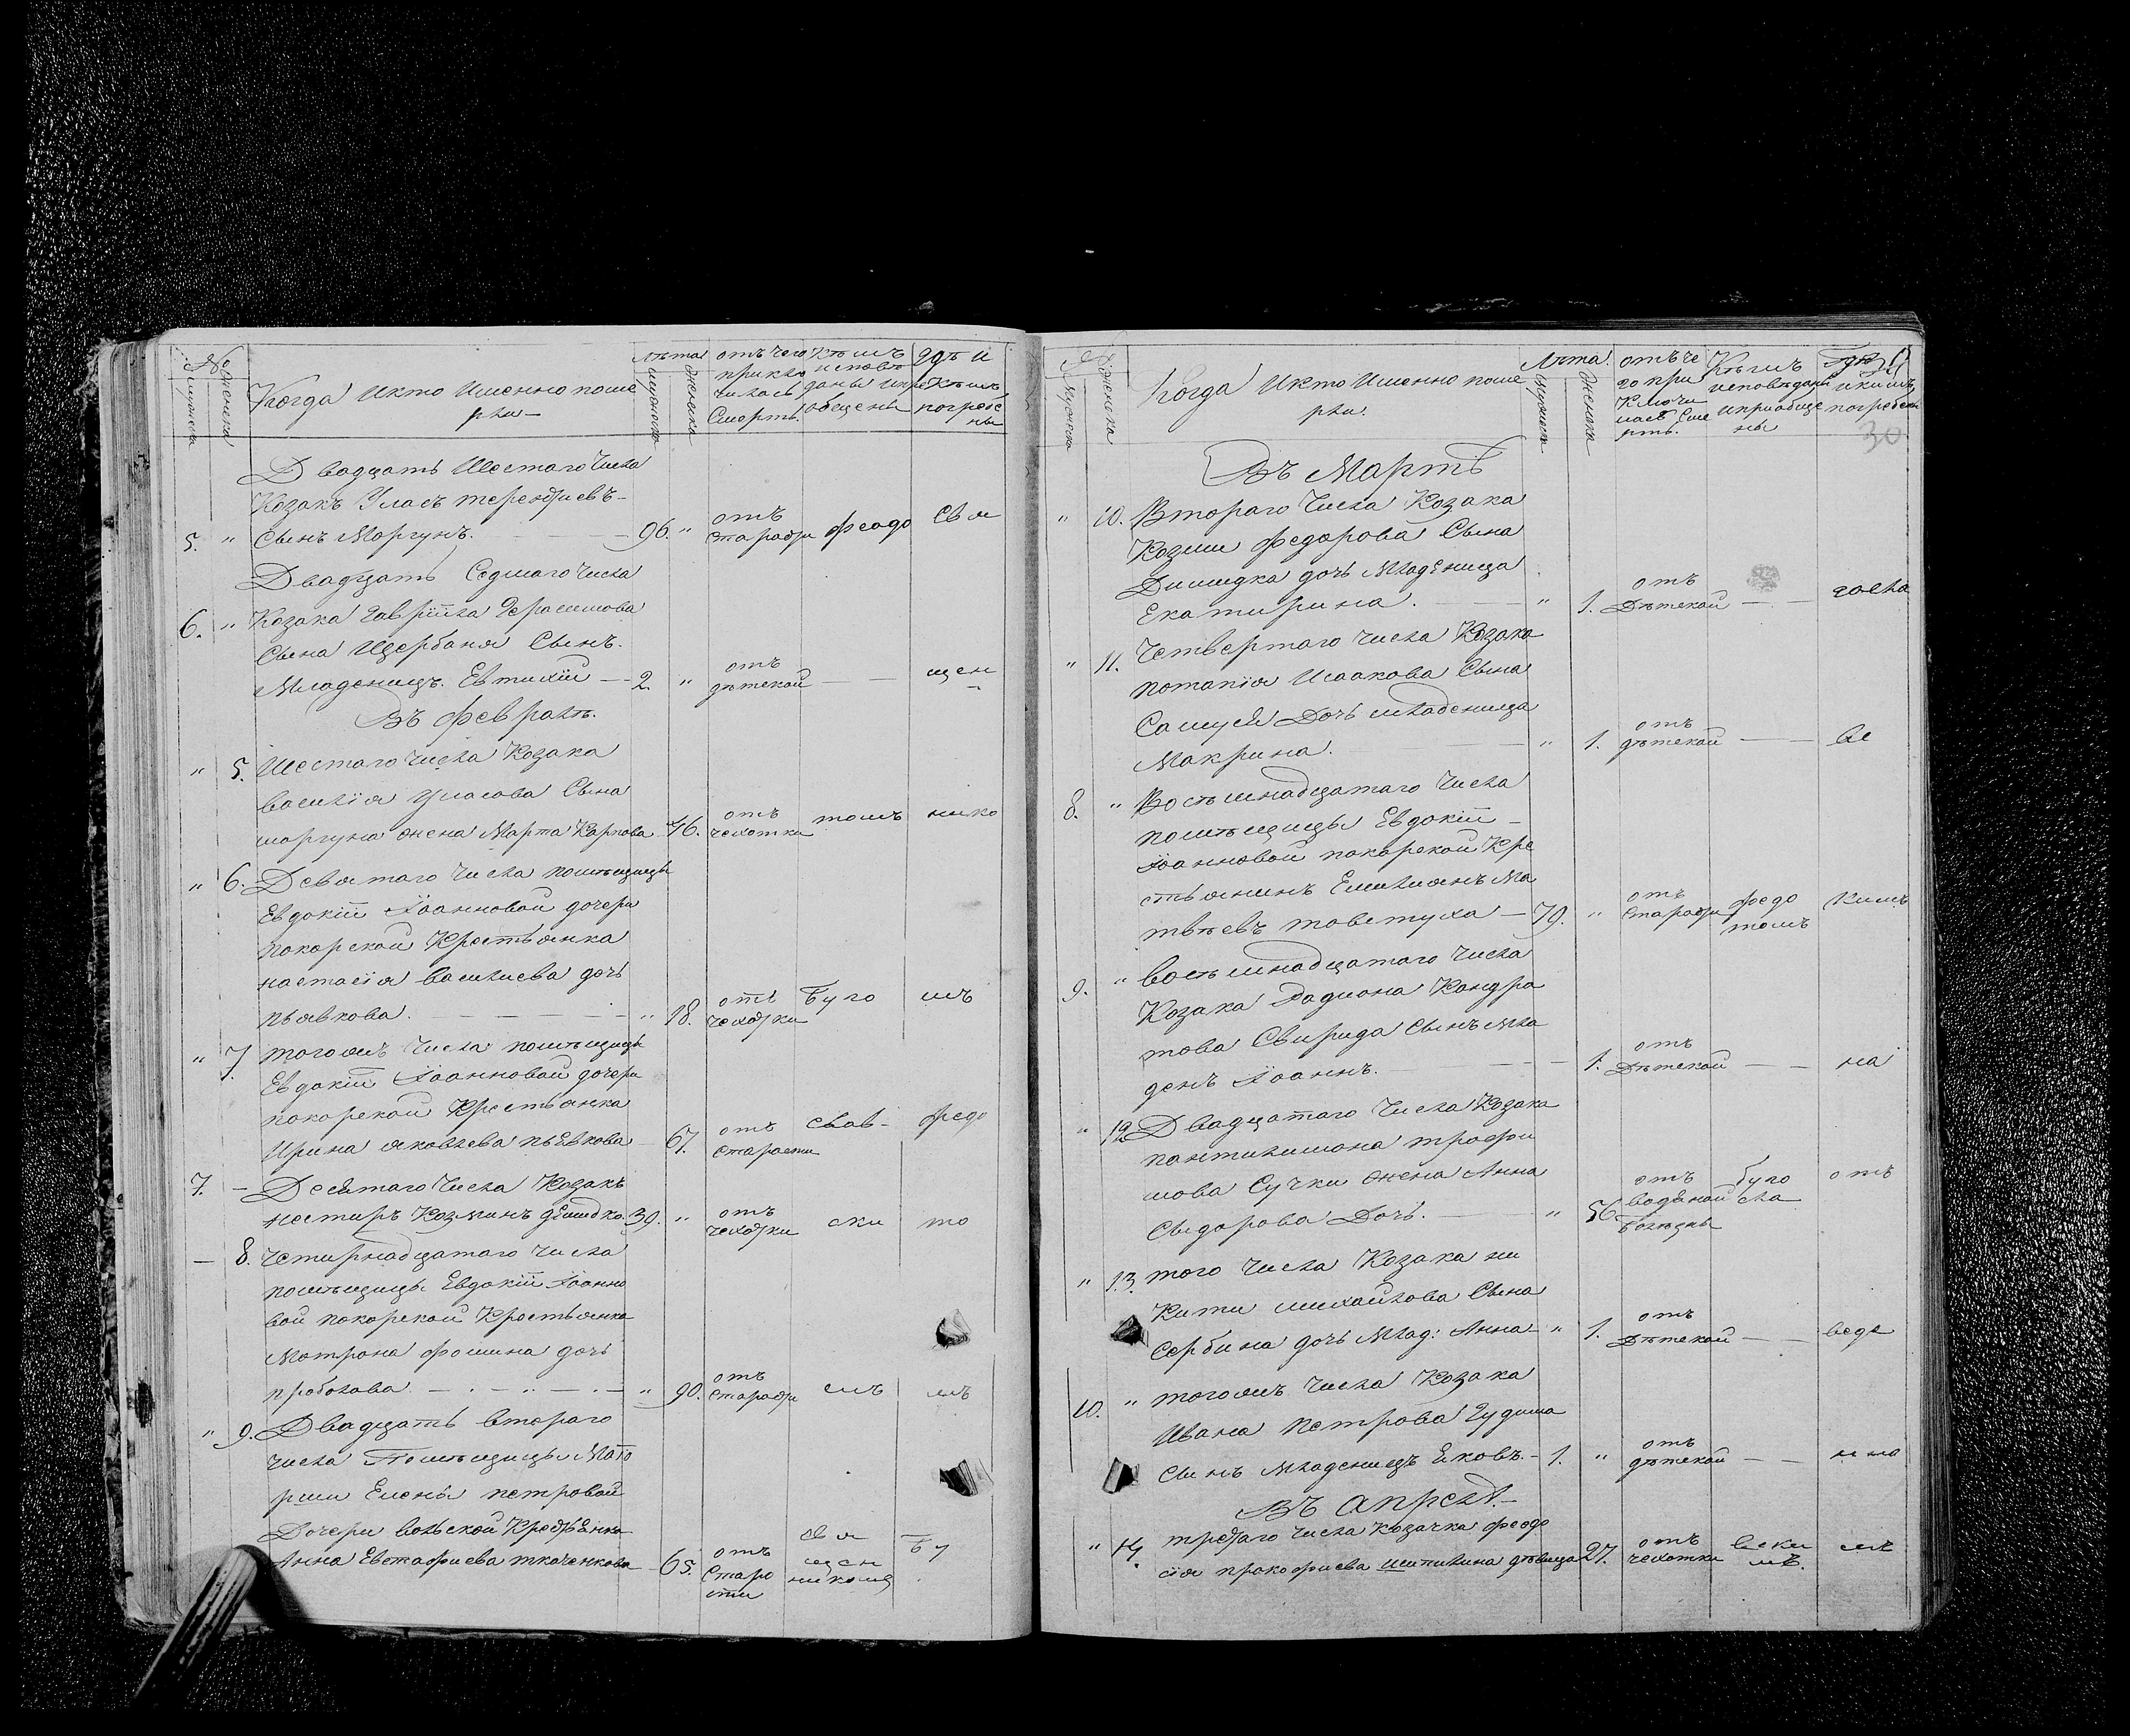 №
мужеска
женска
Когда и кто именно поме
рли
лѣта
мужеска
женска
отъ чего
приклю
чилась
Смерть.
Кѣмъ
исповѣ
даны и прі
общены
Гдѣ и
Кѣмъ
погребе
ны
Двадцать Шестаго Числа
Козакъ Уласъ терентіевъ
5. " Сынъ Моргунъ. 96. " отъ старости феодо свя
Двадцать Седмаго Числа
6. " Козака Гавріила Герасимова
Сына Щербаня Сынъ
Младенецъ Евтихій 2. " отъ дѣтской — щен
Въ февралѣ.
" 5. Шестаго Числа Козака
Василія Уласова Сына
моргуна жена Марта Карпова 46. отъ чехотки томъ нико
" 6. Девятаго Числа помѣщицы
Евдокіи Іоанновой дочери
покорской Крестьянка
настасія Василиева дочь
пьявкова. " 18. отъ чехотки Буго мъ
" 7. тогожъ Числа помѣщицы
Евдокіи Іоанновой дочери
покорской Крестьянка
Ирина яковлева пьевкова 67. отъ Старости слав- федо
7. — Десятаго Числа Козакъ
нестиръ Козминъ 39. " отъ чехотки ски то
— 8. Четирнадцатаго Числа
помѣщицы Евдокіи Іоанно
вой покорской Крестьянка
Мотрона фомина дочь
" 90. отъ Старости мъ мъ
" 9. Двадцать втораго
числа Помѣщицы Маіо
рши Елены петровой
Дочери вольской Крестьянка
Анна Евстафиева ткаченкова 65. отъ Старо сти свя щен никомъ Бу
№
мужеска
женска
Когда и кто именно поме
рли.
Лѣта.
мужеска
женска
отъ че
го при
Ключи
лась Сме
рть.
Кѣмъ
исповѣданы
и приобще
ны
Гдѣ
и кимъ
погребены
30
Въ Мартѣ
" 10. Втораго Числа Козака
Козми федорова Сына
дочь Младеница
Екатирина. " 1. отъ Дѣтской — голка
" 11. Четвертаго числа Козака
потапія Исаакова Сына
дочь младеница
Макрина. " 1. отъ дѣтской — ве
8. " Восьмнадцатаго Числа
помѣщицы Евдокіи
Іоанновой покорской Кре
стьянинъ Емилиянъ Ма
твѣевъ товстуха — 79. " отъ Старости федо томъ Кимъ
9. " восьмнадцатаго Числа
Козака Родиона Кондра
това Свирида Сынъ мла
денъ Іоаннъ. 1. отъ Дѣтской — на
" 12. Двадцатаго Числа Козака
пантилимона трофи
мова Сучки жена Анна
Сидорова Дочь. " 56. отъ водяной болѣзны буго ска отъ
" 13. того Числа Козака ни
Кити михайлова Сына
Сербина дочь Млад: Анна " 1. отъ Дѣтской — веде
10. " тогожъ числа Козака
Ивана петрова Гудима
Синъ Младенецъ Яковъ. 1. " отъ дѣтской — нно
Въ апрелѣ
" 14. третаго числа козачка феодо
сія прокофиева дѣвица 27. отъ чехотки вски мъ. мъ